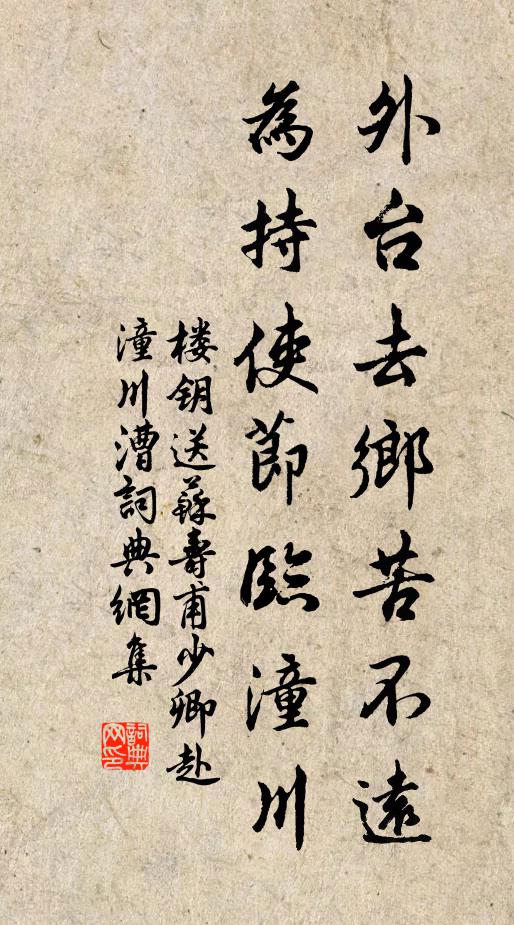 外台去鄉苦不遠
為持使節臨潼川
楼钥送蘇壽甫少卿赴
潼川漕詞典網集
詞典
网印